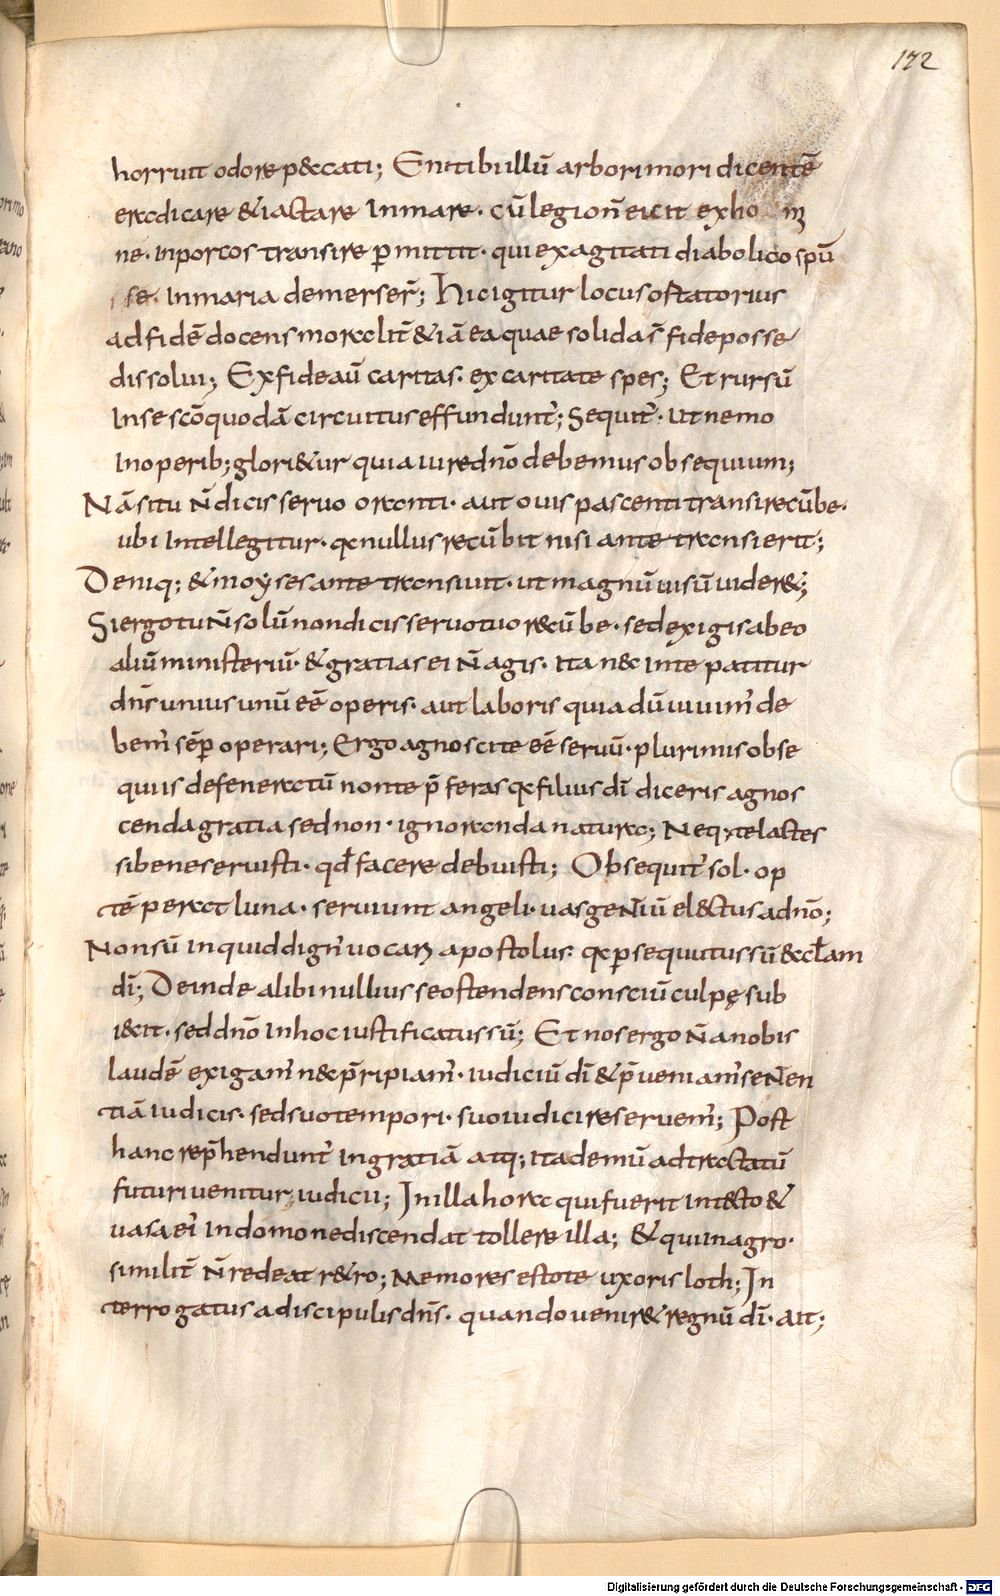 172
horruit odore p&ccati; En tibi illū arbori mori dicentē
eradicare & iactare In mare. cū legionē eicit ex ho mi
ne. In porcos transire p̄mittit. qui exagitati diabolico spū
se. In maria demerser̄; Hic igitur locus ostatorius
ad fidē docens moralit̄ & iā ea quae solida s̄ fide posse
dissolui; Ex fide aū caritas. ex caritate spes; Et rursū
In se scō quodā circuitus effundunt̄; Sequit̄. Ut nemo
In operib; glori&ur quia iure dnō debemus obsequium;
Nā si tu n̄ dicis seruo aranti. aut ouis pascenti transi recūbe.
ubi Intellegitur. qa nullus recūbit nisi ante transierit;
Deniq; & moyses ante transiuit. ut magnū uisū uider&;
Si ergo tu n̄ solū non dicis seruo tuo recūbe. sed exigis ab eo
aliū ministeriū. & gratias ei n̄ agis. Ita nec In te patitur
dn̄s unius unū eē operis. aut laboris quia dū uiuim̄ de
bem̄ sēp operari; Ergo agnosce te eē seruū. plurimis obse
quiis defeneratū non te p̄feras qa filius dī diceris agnos
cenda gratia sed non. ignoranda natura; Neq; te lactes
si bene seruisti. qd̄ facere debuisti; Obsequit̄ sol. op
tēperat luna. seruiunt angeli. uas gentiū el&ctus a dnō;
Non sū Inquid dign̄ uocari apostolus. qa psequutus sū &ccl̄am
dī; Deinde alibi nullius se ostendens consciū culpę sub
i&cit. sed dnō In hoc iustificatus sū; Et nos ergo n̄ a nobis
laudē exigam̄ n&c p̄ripiam̄. iudiciū dī & p̄ueniam̄ senten
tiā iudicis. sed suo tempori. suo iudici reseruem̄; Post
hanc rep̄hendunt̄ Ingratiā atq; ita demū ad tractatū
futuri uenitur iudicii; In illa hora qui fuerit In t&cto &
uasa ei' In domo ne discendat tollere illa; & qui In agro.
similit̄ n̄ redeat r&ro; Memores estote uxoris loth; In
terrogatus a discipulis dn̄s. quando uenir& regnū dī. ait;
Digitalisierung gefördert durch die Deutsche Forschungsgemeinschaft - DFG